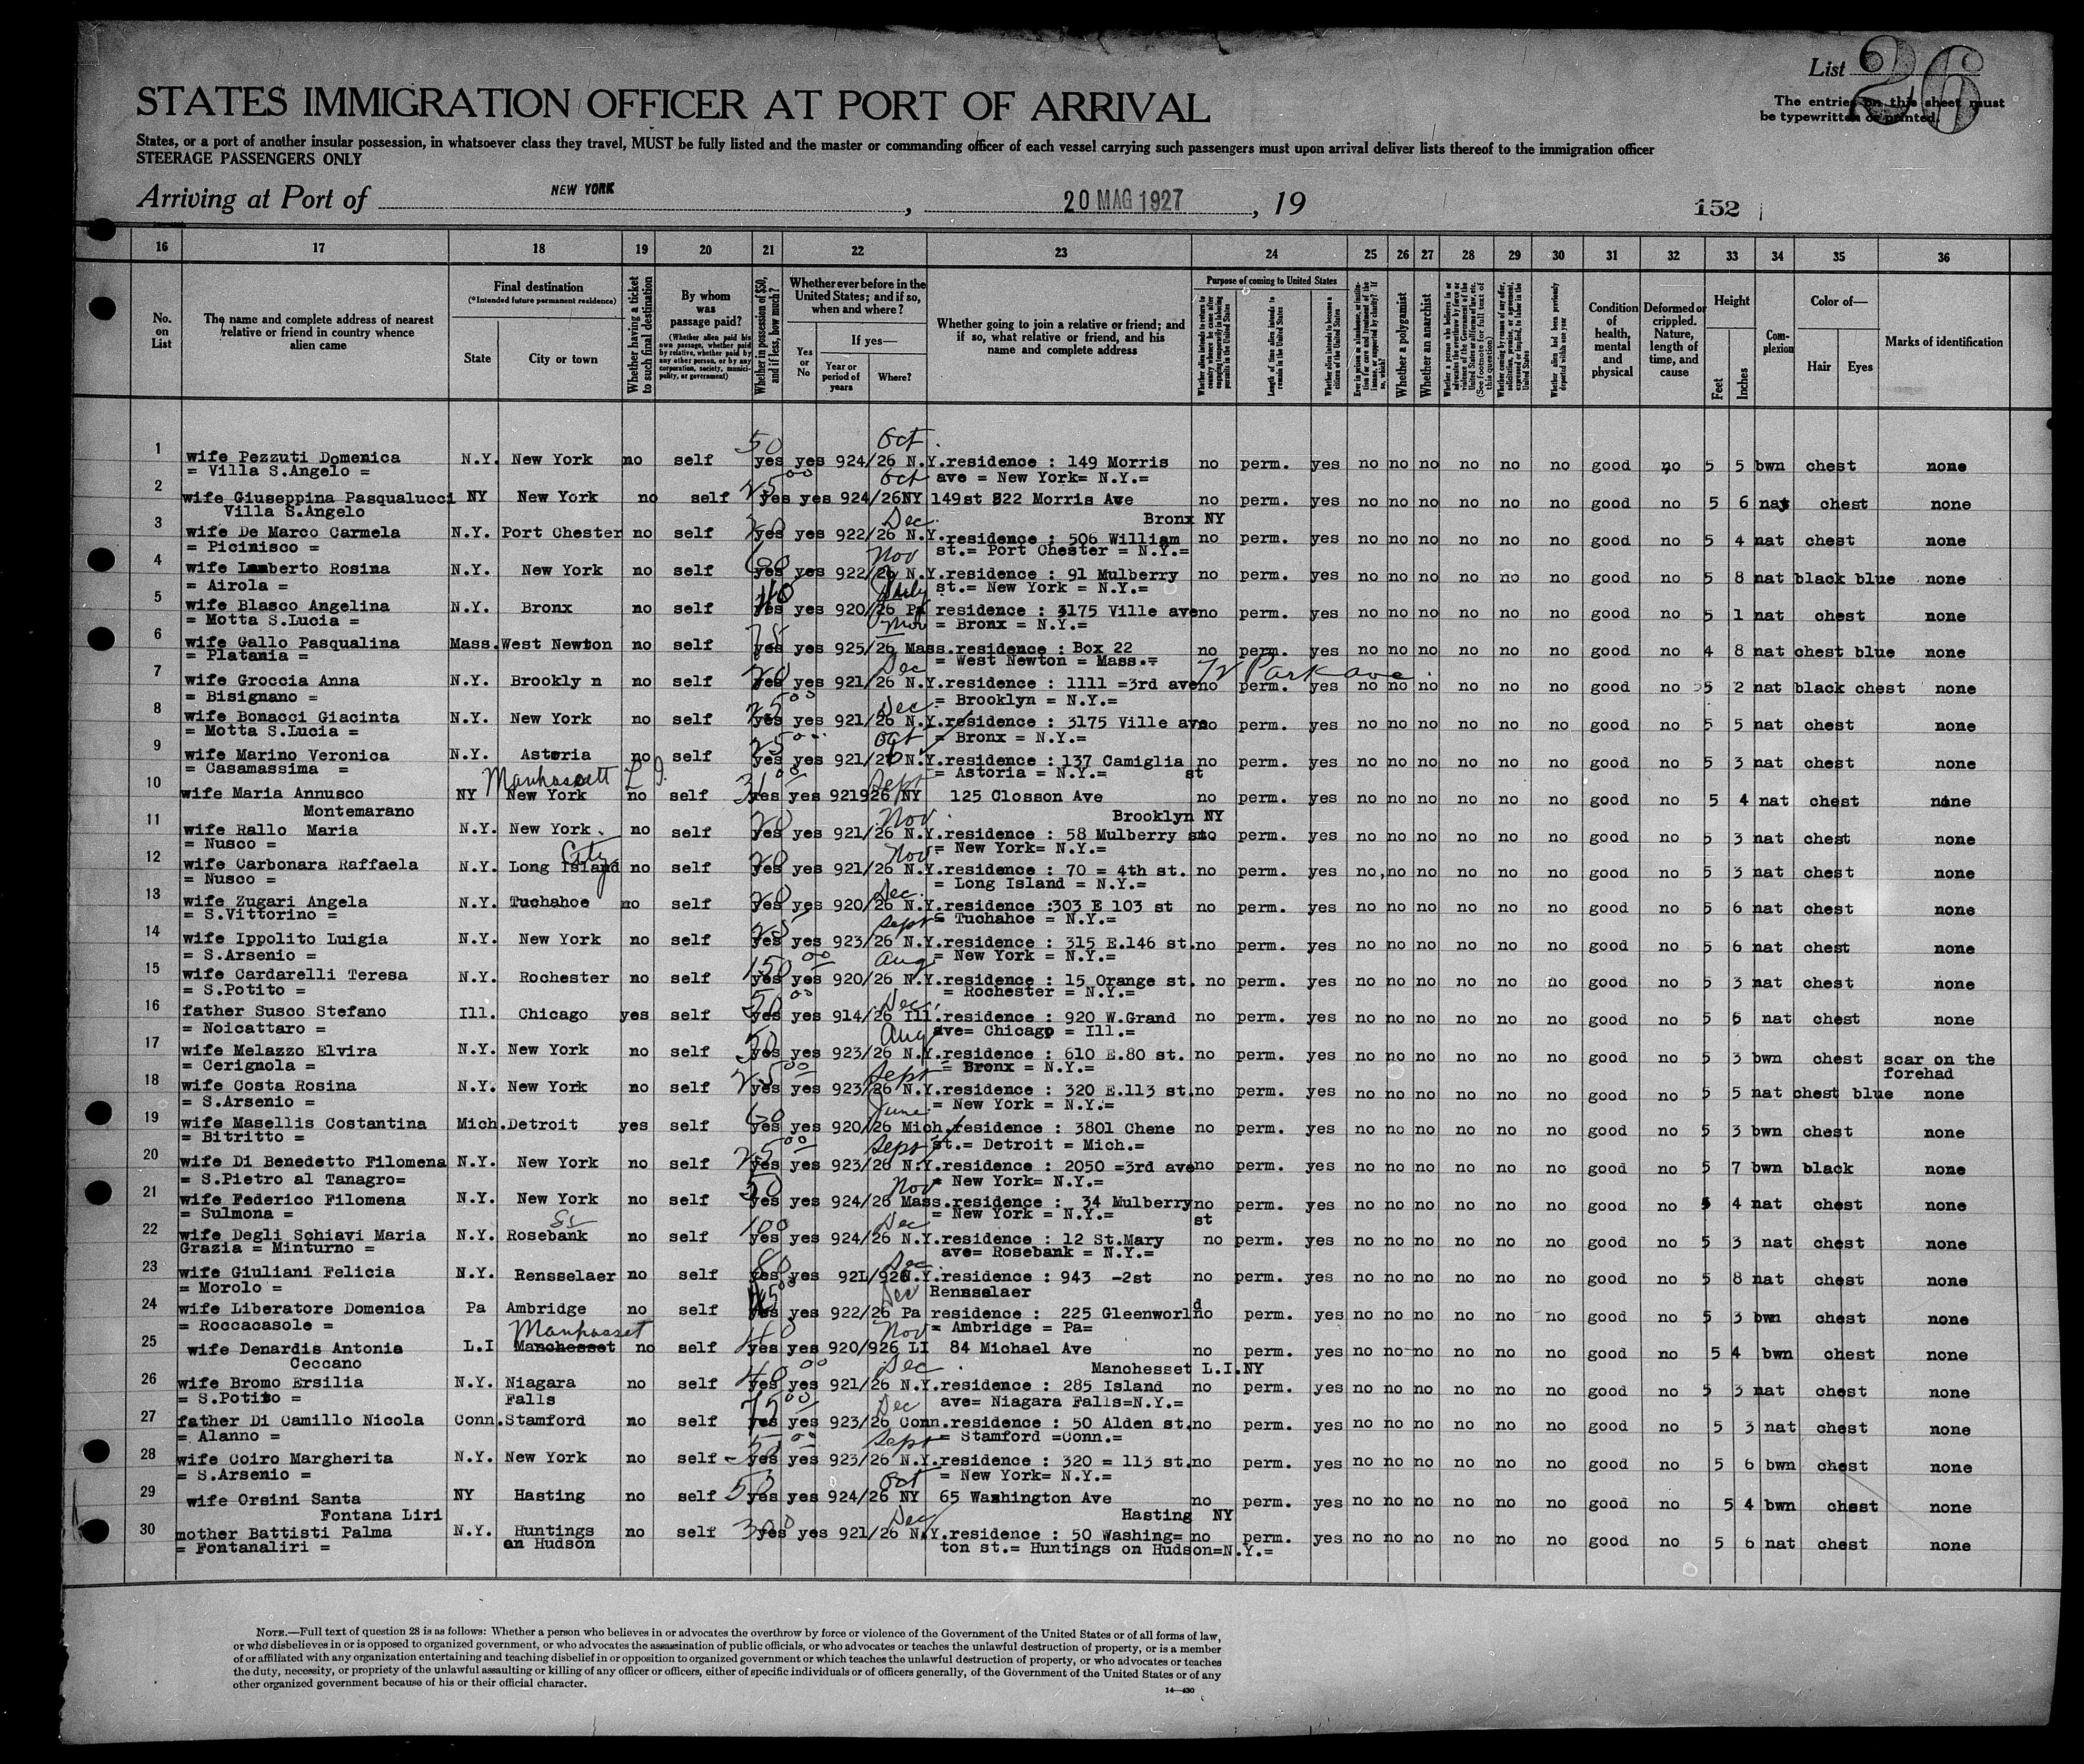 List 26
STATES IMMIGRATION OFFICER AT PORT OF ARRIVAL
The entries on this sheet must
be typewritten or printed.
States, or a port of another insular possession, in whatsoever class they travel, MUST be fully listed and the master or commanding officer of each vessel carrying such passengers must upon arrival deliver lists thereof to the immigration officer
STEERAGE PASSENGERS ONLY
Arriving at Port of NEW YORK , 20 MAG 1927 , 19
152
16 17 18 19 20 21 22 23 24 25 26 27 28 29 30 31 32 33 34 35 36
No. on List
The name and complete address of nearest relative or friend in country whence alien came
Final destination
(*Intended future permanent residence)
State City or town
Whether having a ticket to such final destination
By whom was passage paid?
(Whether alien paid his own passage, whether paid by relative, whether paid by any other person, or by any corporation, society, municipality, or government)
Whether in possession of $50, and if less, how much?
Whether ever before in the United States; and if so, when and where?
Yes or No
If yes—
Year or period of years
Where?
Whether going to join a relative or friend; and if so, what relative or friend, and his name and complete address
Purpose of coming to United States
Length of time alien intends to remain in the United States
Whether alien intends to become a citizen of the United States
Whether a polygamist
Whether an anarchist
Whether alien had been previously deported within one year
Condition of health, mental and physical
Deformed or crippled. Nature, length of time, and cause
Height
Feet Inches
Complexion
Color of—
Hair Eyes
Marks of identification
1 wife Pezzuti Domenica N.Y. New York no self 50 yes yes 924/26 Oct. N.Y. residence : 149 Morris no perm. yes no no no no no no good no 5 5 bwn chest none
= Villa S.Angelo = ave = New York= N.Y.=
2 wife Giuseppina Pasqualucci NY New York no self 25 00 yes yes 924/26 Oct NY 149st 822 Morris Ave no perm. yes no no no no no no good no 5 6 nat chest none
Villa S.Angelo Bronx NY
3 wife De Marco Carmela N.Y. Port Chester no self yes yes 922/26 Dec. N.Y. residence : 506 William no perm. yes no no no no no no good no 5 4 nat chest none
= Picinisco = st.= Port Chester = N.Y.=
4 wife Lamberto Rosina N.Y. New York no self 60 yes yes 922/26 Nov N.Y. residence : 91 Mulberry no perm. yes no no no no no no good no 5 8 nat black blue none
= Airola = st.= New York = N.Y.=
5 wife Blasco Angelina N.Y. Bronx no self yes yes 920/26 July Pa residence : 3175 Ville ave no perm. yes no no no no no no good no 5 1 nat chest none
= Motta S.Lucia = = Bronx = N.Y.=
6 wife Gallo Pasqualina Mass. West Newton no self 75 yes yes 925/26 Nov Mass. residence : Box 22 no perm. yes no no no no no no good no 4 8 nat chest blue none
= Platania = = West Newton = Mass.=
7 wife Groccia Anna N.Y. Brookly n no self 20 yes yes 921/26 Dec N.Y. residence : 1111 =3rd ave Park ave. no perm. yes no no no no no no good no 5 2 nat black chest none
= Bisignano = = Brooklyn = N.Y.=
8 wife Bonacci Giacinta N.Y. New York no self 25 00 yes yes 921/26 Dec. N.Y. residence : 3175 Ville ave no perm. yes no no no no no no good no 5 5 nat chest none
= Motta S.Lucia = = Bronx = N.Y.=
9 wife Marino Veronica N.Y. Astoria no self 25 00 yes yes 921/26 Oct N.Y. residence : 137 Camiglia no perm. yes no no no no no no good no 5 3 nat chest none
= Casamassima = = Astoria = N.Y.= st
10 wife Maria Annusco NY Manhassett L I. New York no self 31 00 yes yes 921926 Sept NY 125 Closson Ave no perm. yes no no no no no no good no 5 4 nat chest none
Montemarano Brooklyn NY
11 wife Rallo Maria N.Y. New York no self 20 yes yes 921/26 Nov. N.Y. residence : 58 Mulberry st. no perm. yes no no no no no no good no 5 3 nat chest none
= Nusco = = New York= N.Y.=
12 wife Carbonara Raffaela N.Y. Long Island City no self 20 yes yes 921/26 Nov N.Y. residence : 70 = 4th st. no perm. yes no no no no no no good no 5 3 nat chest none
= Nusco = = Long Island = N.Y.=
13 wife Zugari Angela N.Y. Tuchahoe no self 20 yes yes 920/26 Dec. N.Y. residence :303 E 103 st no perm. yes no no no no no no good no 5 6 nat chest none
= S.Vittorino = = Tuchahoe = N.Y.=
14 wife Ippolito Luigia N.Y. New York no self 25 yes yes 923/26 Sept N.Y. residence : 315 E.146 st. no perm. yes no no no no no no good no 5 6 nat chest none
= S.Arsenio = = New York = N.Y.=
15 wife Cardarelli Teresa N.Y. Rochester no self 150 00 yes yes 920/26 Aug N.Y. residence : 15 Orange st. no perm. yes no no no no no no good no 5 3 nat chest none
= S.Potito = = Rochester = N.Y.=
16 father Susco Stefano Ill. Chicago yes self 50 00 yes yes 914/26 Dec. Ill. residence : 920 W.Grand no perm. yes no no no no no no good no 5 6 nat chest none
= Noicattaro = ave= Chicago = Ill.=
17 wife Melazzo Elvira N.Y. New York no self 50 yes yes 923/26 Aug N.Y. residence : 610 E.80 st. no perm. yes no no no no no no good no 5 3 bwn chest scar on the
= Cerignola = = Bronx = N.Y.= forehad
18 wife Costa Rosina N.Y. New York no self 25 00 yes yes 923/26 Sept N.Y. residence : 320 E.113 st. no perm. yes no no no no no no good no 5 5 nat chest blue none
= S.Arsenio = = New York = N.Y.=
19 wife Masellis Costantina Mich. Detroit yes self 60 yes yes 920/26 June Mich. residence : 3801 Chene no perm. yes no no no no no no good no 5 3 bwn chest none
= Bitritto = st.= Detroit = Mich.=
20 wife Di Benedetto Filomena N.Y. New York no self 25 00 yes yes 923/26 Sept N.Y. residence : 2050 =3rd ave no perm. yes no no no no no no good no 5 7 bwn black none
= S.Pietro al Tanagro= = New York= N.Y.=
21 wife Federico Filomena N.Y. New York no self 50 yes yes 924/26 Nov Mass. residence : 34 Mulberry no perm. yes no no no no no no good no 5 4 nat chest none
= Sulmona = = New York = N.Y.= st
22 wife Degli Schiavi Maria N.Y. Rosebank no self 100 yes yes 924/26 Dec N.Y. residence : 12 St.Mary no perm. yes no no no no no no good no 5 3 nat chest none
Grazia = Minturno = ave= Rosebank = N.Y.=
23 wife Giuliani Felicia N.Y. Rensselaer no self 80 yes yes 921/926 Dec. N.Y. residence : 943 -2st no perm. yes no no no no no no good no 5 8 nat chest none
= Morolo = Rensselaer
24 wife Liberatore Domenica Pa Ambridge no self yes yes 922/26 Dec Pa residence : 225 Gleenworld no perm. yes no no no no no no good no 5 3 bwn chest none
= Roccacasole = = Ambridge = Pa=
25 wife Denardis Antonia L.I Manhasset Manchesset no self 40 yes yes 920/926 Nov LI 84 Michael Ave no perm. yes no no no no no no good no 5 4 bwn chest none
Ceccano Manchesset L.I.NY
26 wife Bromo Ersilia N.Y. Niagara no self 40 00 yes yes 921/26 Dec. N.Y. residence : 285 Island no perm. yes no no no no no no good no 5 3 nat chest none
= S.Potito = Falls ave= Niagara Falls=N.Y.=
27 father Di Camillo Nicola Conn. Stamford no self 75 00 yes yes 923/26 Dec Conn. residence : 50 Alden st. no perm. yes no no no no no no good no 5 3 nat chest none
= Alanno = = Stamford =Conn.=
28 wife Coiro Margherita N.Y. New York no self 50 00 yes yes 923/26 Sept N.Y. residence : 320 = 113 st. no perm. yes no no no no no no good no 5 6 bwn chest none
= S.Arsenio = = New York= N.Y.=
29 wife Orsini Santa NY Hasting no self 50 yes yes 924/26 Oct NY 65 Washington Ave no perm. yes no no no no no no good no 5 4 bwn chest none
Fontana Liri Hasting NY
30 mother Battisti Palma N.Y. Huntings no self 300 yes yes 921/26 Dec N.Y. residence : 50 Washing= no perm. yes no no no no no no good no 5 6 nat chest none
= Fontanaliri = on Hudson ton st.= Huntings on Hudson=N.Y.=
NOTE.—Full text of question 28 is as follows: Whether a person who believes in or advocates the overthrow by force or violence of the Government of the United States or of all forms of law,
or who disbelieves in or is opposed to organized government, or who advocates the assassination of public officials, or who advocates or teaches the unlawful destruction of property, or is a member
of or affiliated with any organization entertaining and teaching disbelief in or opposition to organized government or which teaches the unlawful destruction of property, or who advocates or teaches
the duty, necessity, or propriety of the unlawful assaulting or killing of any officer or officers, either of specific individuals or of officers generally, of the Government of the United States or of any
other organized government because of his or their official character.
14—430